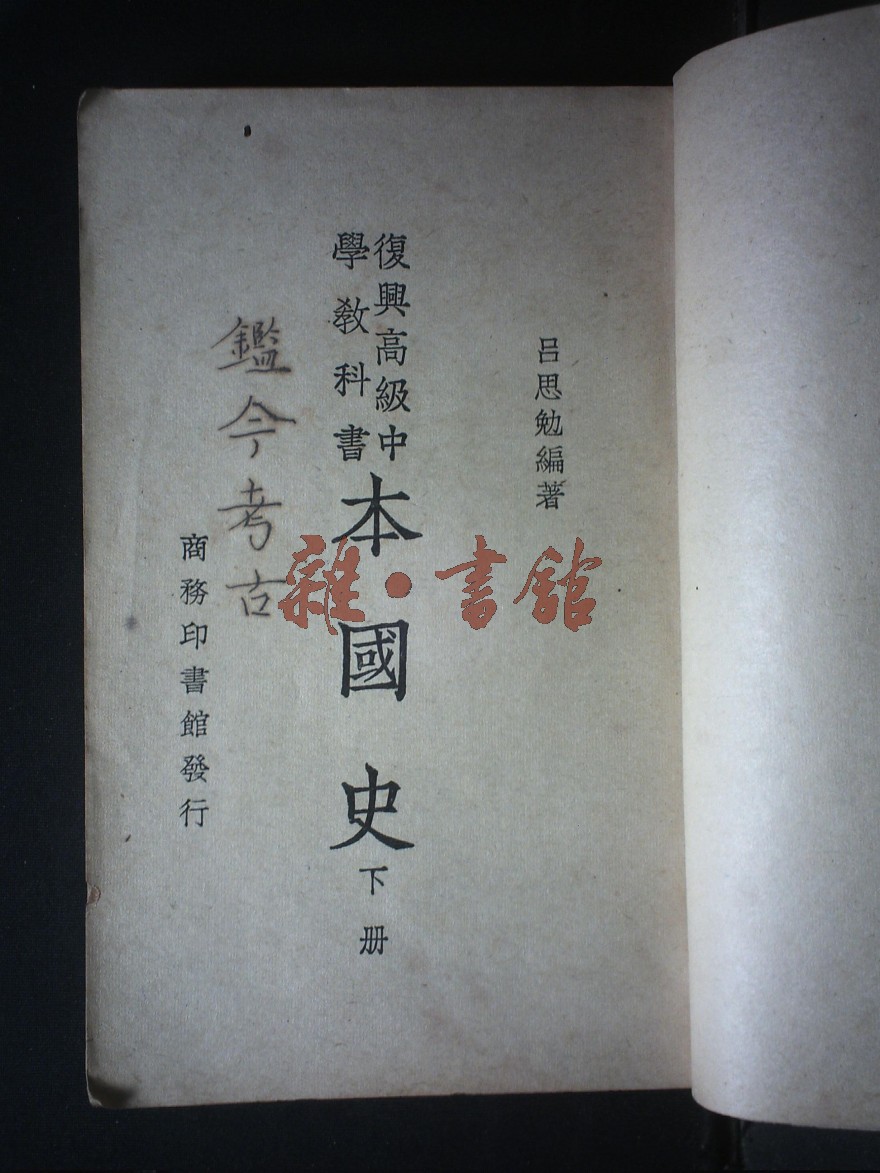 呂思勉編著
復興高級中
學教科書
本國史
下册
鑑今考古
商務印書館發行
雜·書館